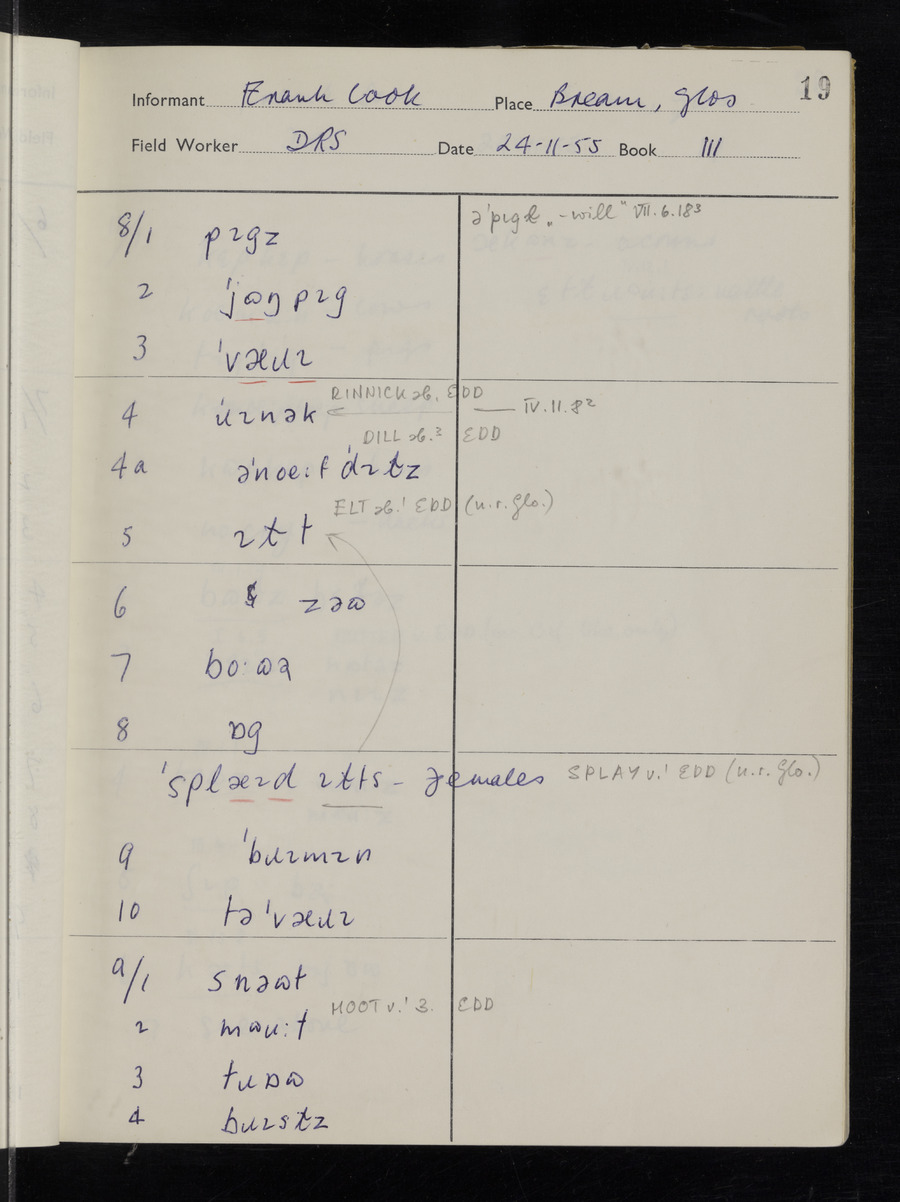 19
Informant Frank Cook Place Bream, Glos
Field Worker DRS Date 24-11-55 Book III
8/1 pɪgz ə'pɪgɫ „-will" VII.6.18³
2 'jɷŋ pɪg
3 'væɹɪ
4 ɹɪnək RINNICK sb. EDD — IV.11.8²
4a ə'nœ:ɫ 'dɪɫz DILL sb.³ EDD
5 ɪɫt ELT sb.¹ EDD (n.r. Glo.)
6 zəɷ
7 bo:ɷə
8 ɒg
'splæɪd ɪɫts - females SPLAY v.¹ EDD (n.r. Glo.)
9 'bɹɪmɪn
10 tə 'væɹɪ
9/1 snəɷt
2 mɷu:t MOOT v.¹ 3. EDD
3 tɹɒɷ
4 bɹɪsɫz